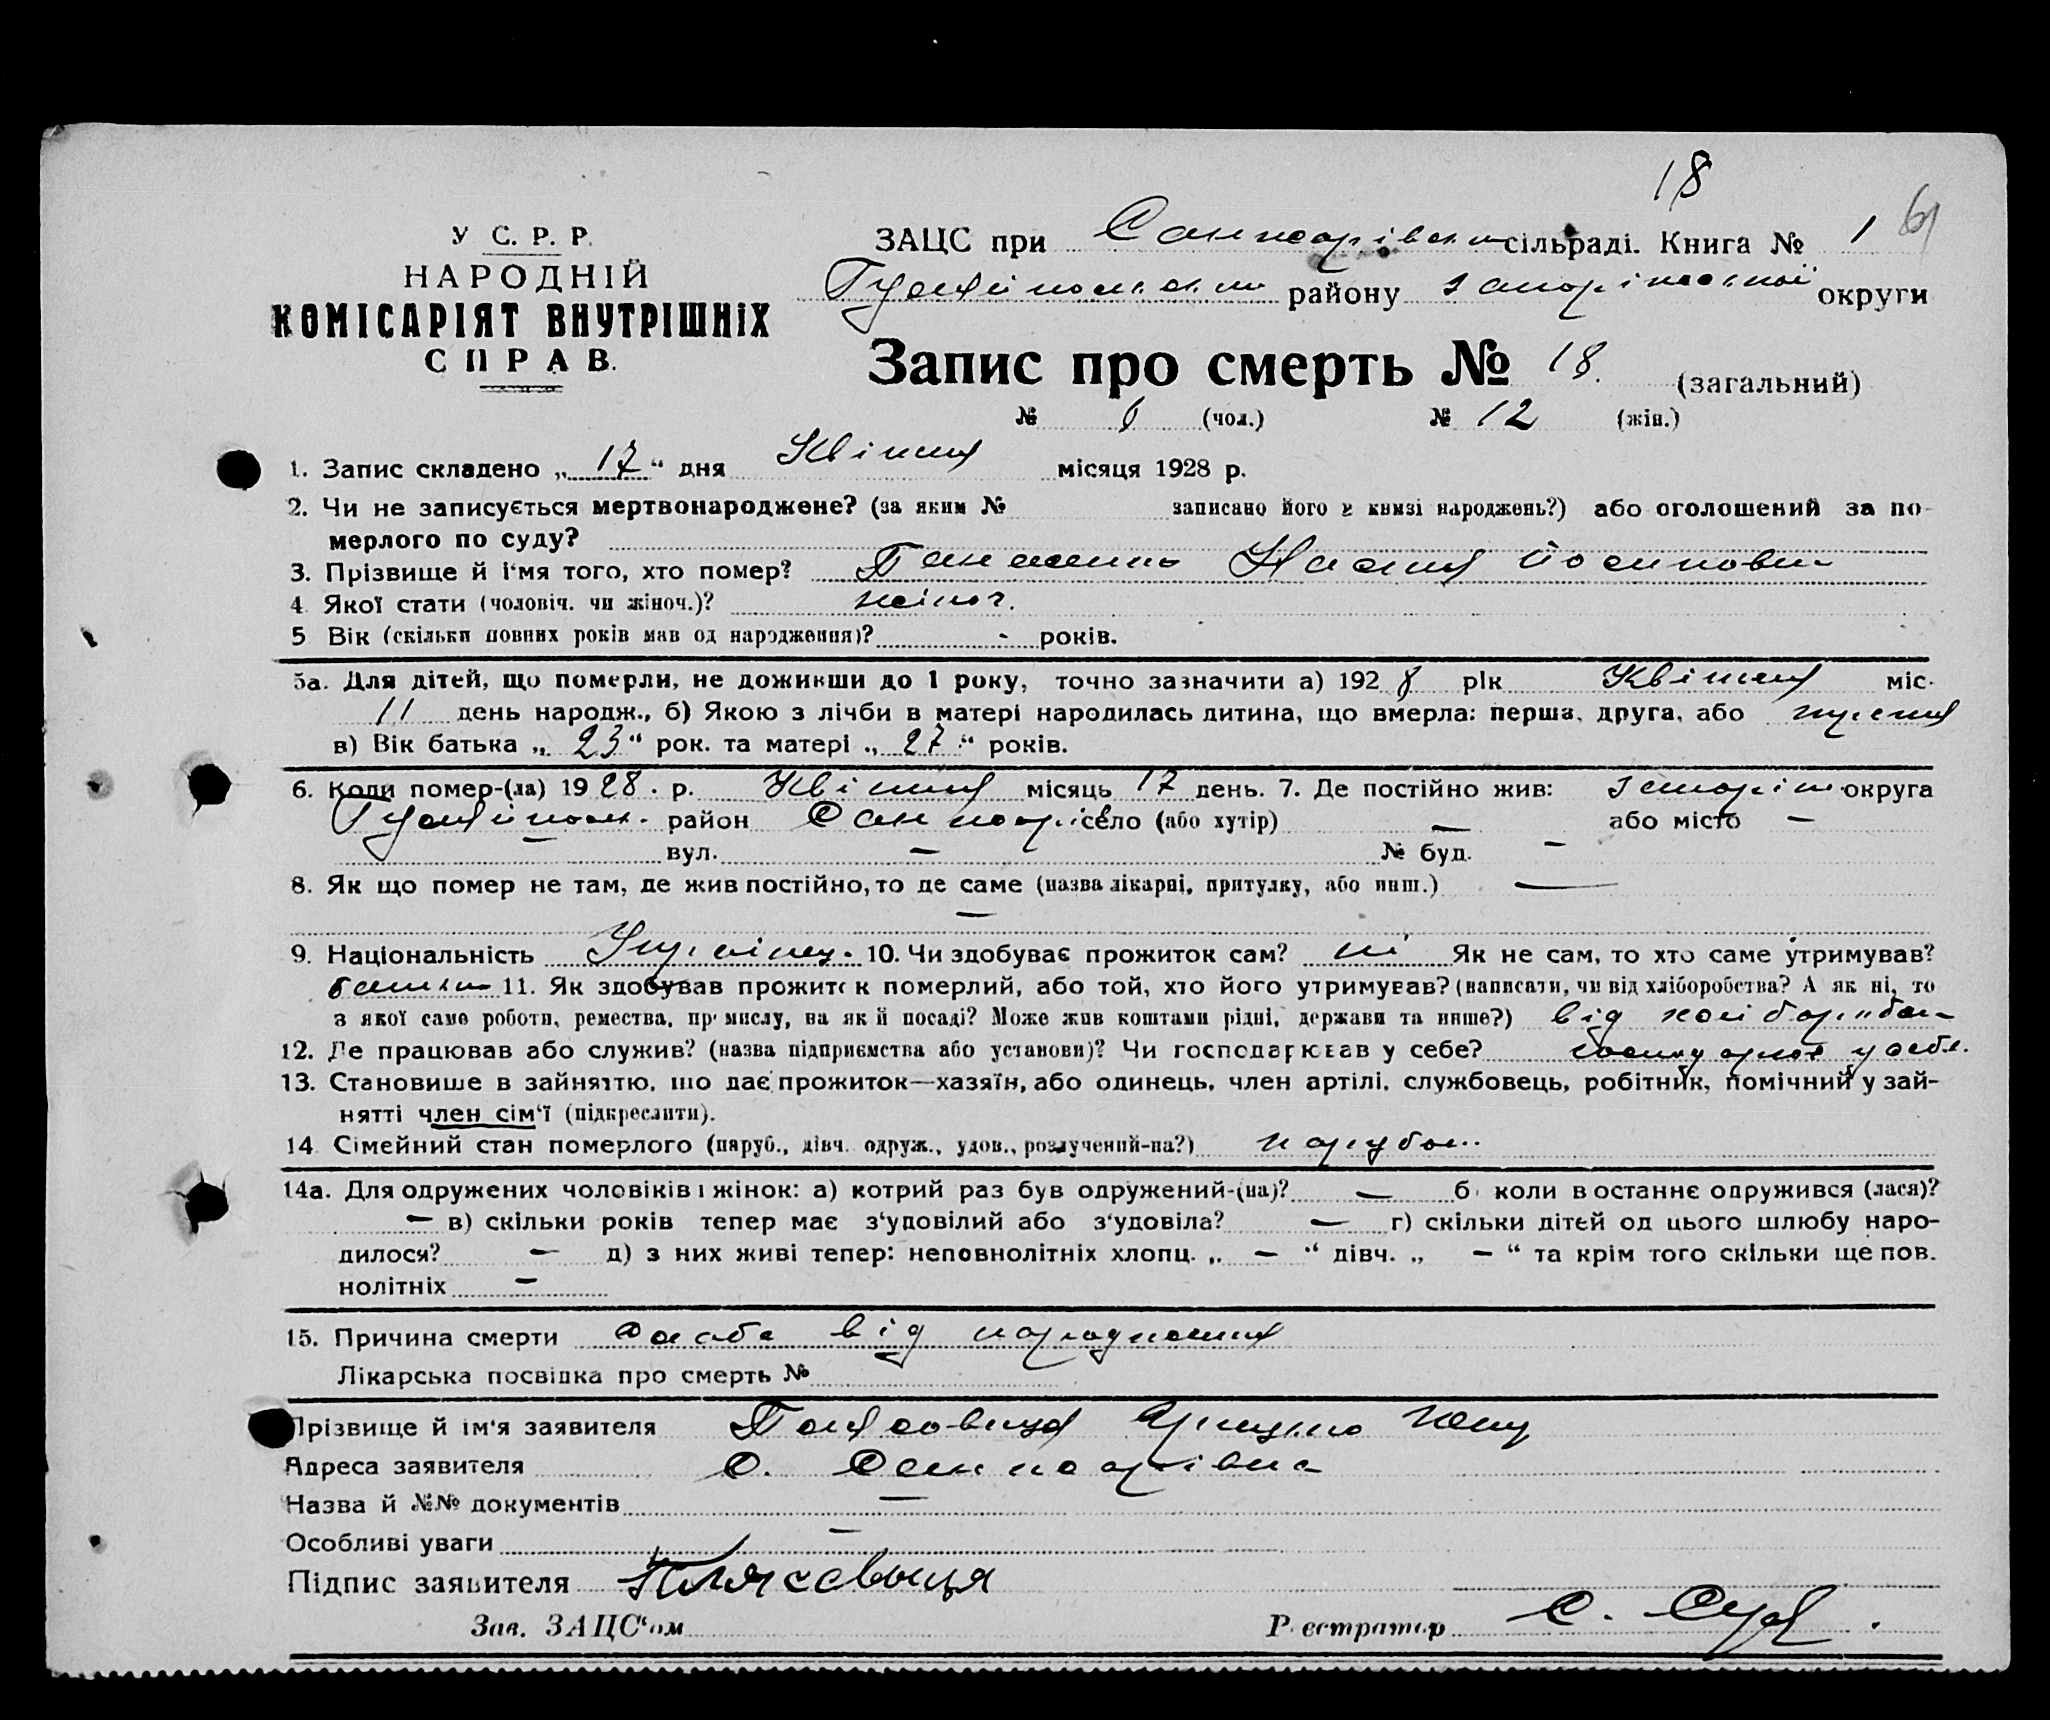 18
У С. Р. Р.
НАРОДНІЙ
КОМІСАРІЯТ ВНУТРІШНІХ
СПРАВ.
ЗАЦС при Санжарівськ сільраді. Книга № 1 61
Гуляйпольськ району Запоріжської округи
Запис про смерть № 18. (загальний)
№ 6 (чол.) № 12 (жін.)
1. Запис складено „ 17 “ дня Квітня місяця 1928 р.
2. Чи не записується мертвонароджене? (за яким № записано його в книзі народжень?) або оголошений за по-
мерлого по суду?
3. Прізвище й і‘мя того, хто помер? Настя Йосиповна
4 Якої стати (чоловіч. чи жіноч.)? жіноч.
5 Вік (скільки повних років мав од народження)? - років.
5а. Для дітей, що померли, не доживши до 1 року, точно зазначити а) 192 8 рік Квітня міс.
11 день народж., б) Якою з лічби в матері народилась дитина, що вмерла: перша, друга, або третя
в) Вік батька „ 23 “ рок. та матері „ 27 “ років.
6. Коли помер-(ла) 19 28. р. Квітня місяць 17 день. 7. Де постійно жив: Запоріж округа
Гуляйпол. район Санжарів село (або хутір) — або місто —
— вул. — № буд. —
8. Як що помер не там, де жив постійно, то де саме (назва лікарні, притулку, або инш.) —
—
9. Національність Україн. 10. Чи здобуває прожиток сам? ні Як не сам, то хто саме утримував?
батько 11. Як здобував прожиток померлий, або той, хто його утримував? (написати, чи від хліборобства? А як ні, то
з якої саме роботи, ремества, промислу, на якій посаді? Може жив коштами рідні, держави та инше?) від хліборобст
12. Де працював або служив? (назва підприємства або установи)? Чи господарював у себе? у себе.
13. Становище в зайняттю, що дає прожиток—хазяїн, або одинець, член артілі, службовець, робітник, помічний у зай-
нятті член сім‘ї (підкреслити).
14 Сімейний стан померлого (паруб., дівч. одруж., удов., розлучений-на?) парубок.
14а. Для одружених чоловіків і жінок: а) котрий раз був одружений-(на)? — б коли в останнє одружився (лася)?
— в) скільки років тепер має з‘удовілий або з‘удовіла? — г) скільки дітей од цього шлюбу наро-
дилося? — д) з них живі тепер: неповнолітніх хлопц. „ — “ дівч. „ — “ та крім того скільки ще пов.
нолітніх —
15. Причина смерти слабе від народження
Лікарська посвідка про смерть №
Прізвище й ім'я заявителя
Адреса заявителя С. Санжарівка
Назва й №№ документів —
Особливі уваги —
Підпис заявителя
Зав. ЗАЦС‘ом Реєстратор С.